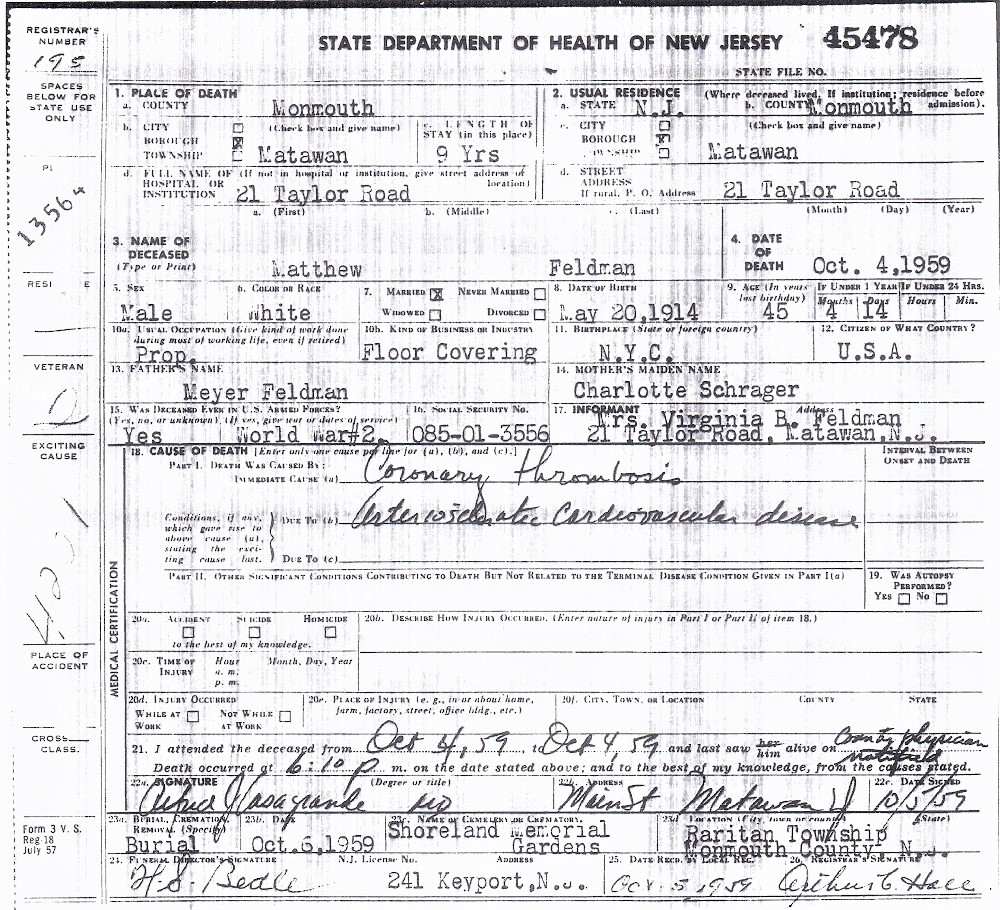 REGISTRAR'S NUMBER
195
STATE DEPARTMENT OF HEALTH OF NEW JERSEY 45478
STATE FILE NO.
SPACES BELOW FOR STATE USE ONLY
1. PLACE OF DEATH
a. COUNTY Monmouth
b. CITY (Check box and give name)
BOROUGH
TOWNSHIP Matawan
c. LENGTH OF STAY (in this place)
9 Yrs
d. FULL NAME OF (If not in hospital or institution, give street address or location)
HOSPITAL OR INSTITUTION 21 Taylor Road
2. USUAL RESIDENCE (Where deceased lived. If institution; residence before admission).
a. STATE N.J. b. COUNTY Monmouth
c. CITY (Check box and give name)
BOROUGH
TOWNSHIP Matawan
d. STREET ADDRESS
If rural, P. O. Address 21 Taylor Road
13564
3. NAME OF DECEASED
(Type or Print)
a. (First) b. (Middle) c. (Last)
Matthew Feldman
4. DATE OF DEATH
(Month) (Day) (Year)
Oct. 4,1959
RESI E
5. SEX
Male
6. COLOR OR RACE
White
7. MARRIED NEVER MARRIED
WIDOWED DIVORCED
8. DATE OF BIRTH
May 20,1914
9. AGE (In years last birthday)
45
IF UNDER 1 YEAR
Months Days
4 14
IF UNDER 24 HRS.
Hours Min.
10a. USUAL OCCUPATION (Give kind of work done during most of working life, even if retired)
Prop.
10b. KIND OF BUSINESS OR INDUSTRY
Floor Covering
11. BIRTHPLACE (State or foreign country)
N.Y.C.
12. CITIZEN OF WHAT COUNTRY?
U.S.A.
VETERAN
13. FATHER'S NAME
Meyer Feldman
14. MOTHER'S MAIDEN NAME
Charlotte Schrager
15. WAS DECEASED EVER IN U.S. ARMED FORCES?
(Yes, no, or unknown) (If yes, give war or dates of service)
Yes World War#2.
16. SOCIAL SECURITY NO.
085-01-3556
17. INFORMANT Address
Mrs. Virginia B. Feldman
21 Taylor Road, Matawan,N.J.
EXCITING CAUSE
18. CAUSE OF DEATH [Enter only one cause per line for (a), (b), and (c).]
INTERVAL BETWEEN ONSET AND DEATH
PART I. DEATH WAS CAUSED BY:
IMMEDIATE CAUSE (a) Coronary thrombosis
Conditions, if any, which gave rise to above cause (a), stating the exciting cause last.
DUE TO (b) Arteriosclerotic Cardiovascular disease
DUE TO (c)
PART II. OTHER SIGNIFICANT CONDITIONS CONTRIBUTING TO DEATH BUT NOT RELATED TO THE TERMINAL DISEASE CONDITION GIVEN IN PART I(a)
19. WAS AUTOPSY PERFORMED?
YES NO
MEDICAL CERTIFICATION
PLACE OF ACCIDENT
20a. ACCIDENT SUICIDE HOMICIDE
to the best of my knowledge.
20b. DESCRIBE HOW INJURY OCCURRED. (Enter nature of injury in Part I or Part II of item 18.)
20c. TIME OF INJURY Hour Month, Day, Year
a. m.
p. m.
20d. INJURY OCCURRED
WHILE AT WORK NOT WHILE AT WORK
20e. PLACE OF INJURY (e. g., in or about home, farm, factory, street, office bldg., etc.)
20f. CITY, TOWN, OR LOCATION COUNTY STATE
CROSS CLASS.
21. I attended the deceased from Oct 4, 59 to Oct 4, 59 and last saw her him alive on County physician notified
Death occurred at 6:10 p m. on the date stated above; and to the best of my knowledge, from the causes stated.
22a. SIGNATURE (Degree or title)
Casagrande MD
22b. ADDRESS
Main St Matawan NJ
22c. DATE SIGNED
10/5/59
Form 3 V. S.
Reg 18
July 57
23a. BURIAL, CREMATION, REMOVAL (Specify)
Burial
23b. DATE
Oct.6,1959
23c. NAME OF CEMETERY OR CREMATORY.
Shoreland Memorial Gardens
23d. LOCATION (City, town or county) (State)
Raritan Township
Monmouth County, N.J.
24. FUNERAL DIRECTOR'S SIGNATURE N.J. License No. ADDRESS
H.S. Bedle 241 Keyport,N.J.
25. DATE RECD. BY LOCAL REG.
Oct. 5, 1959
26. REGISTRAR'S SIGNATURE
Arthur C. Hall